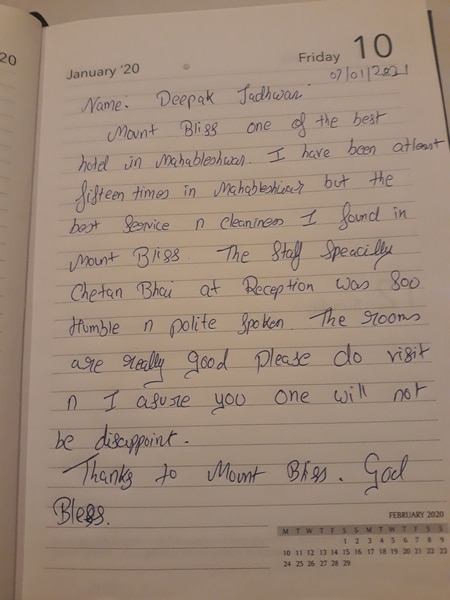 20
January '20
Friday 10
07/01/2021
Name: Deepak Jadhwar
Mount Bliss one of the best
hotel in Mahableshwar. I have been atleast
fifteen times in Mahableshwar but the
best Service n cleaniness I found in
Mount Bliss. The Staff Speacilly
Chetan Bhai at Reception was soo
Humble n polite spoken The rooms
are really good please do visit
n I asure you one will not
be disappoint.
Thanks to Mount Bliss. God
Bless.
FEBRUARY 2020
M T W T F S S M T W T F S S
1 2 3 4 5 6 7 8 9
10 11 12 13 14 15 16 17 18 19 20 21 22 23
24 25 26 27 28 29